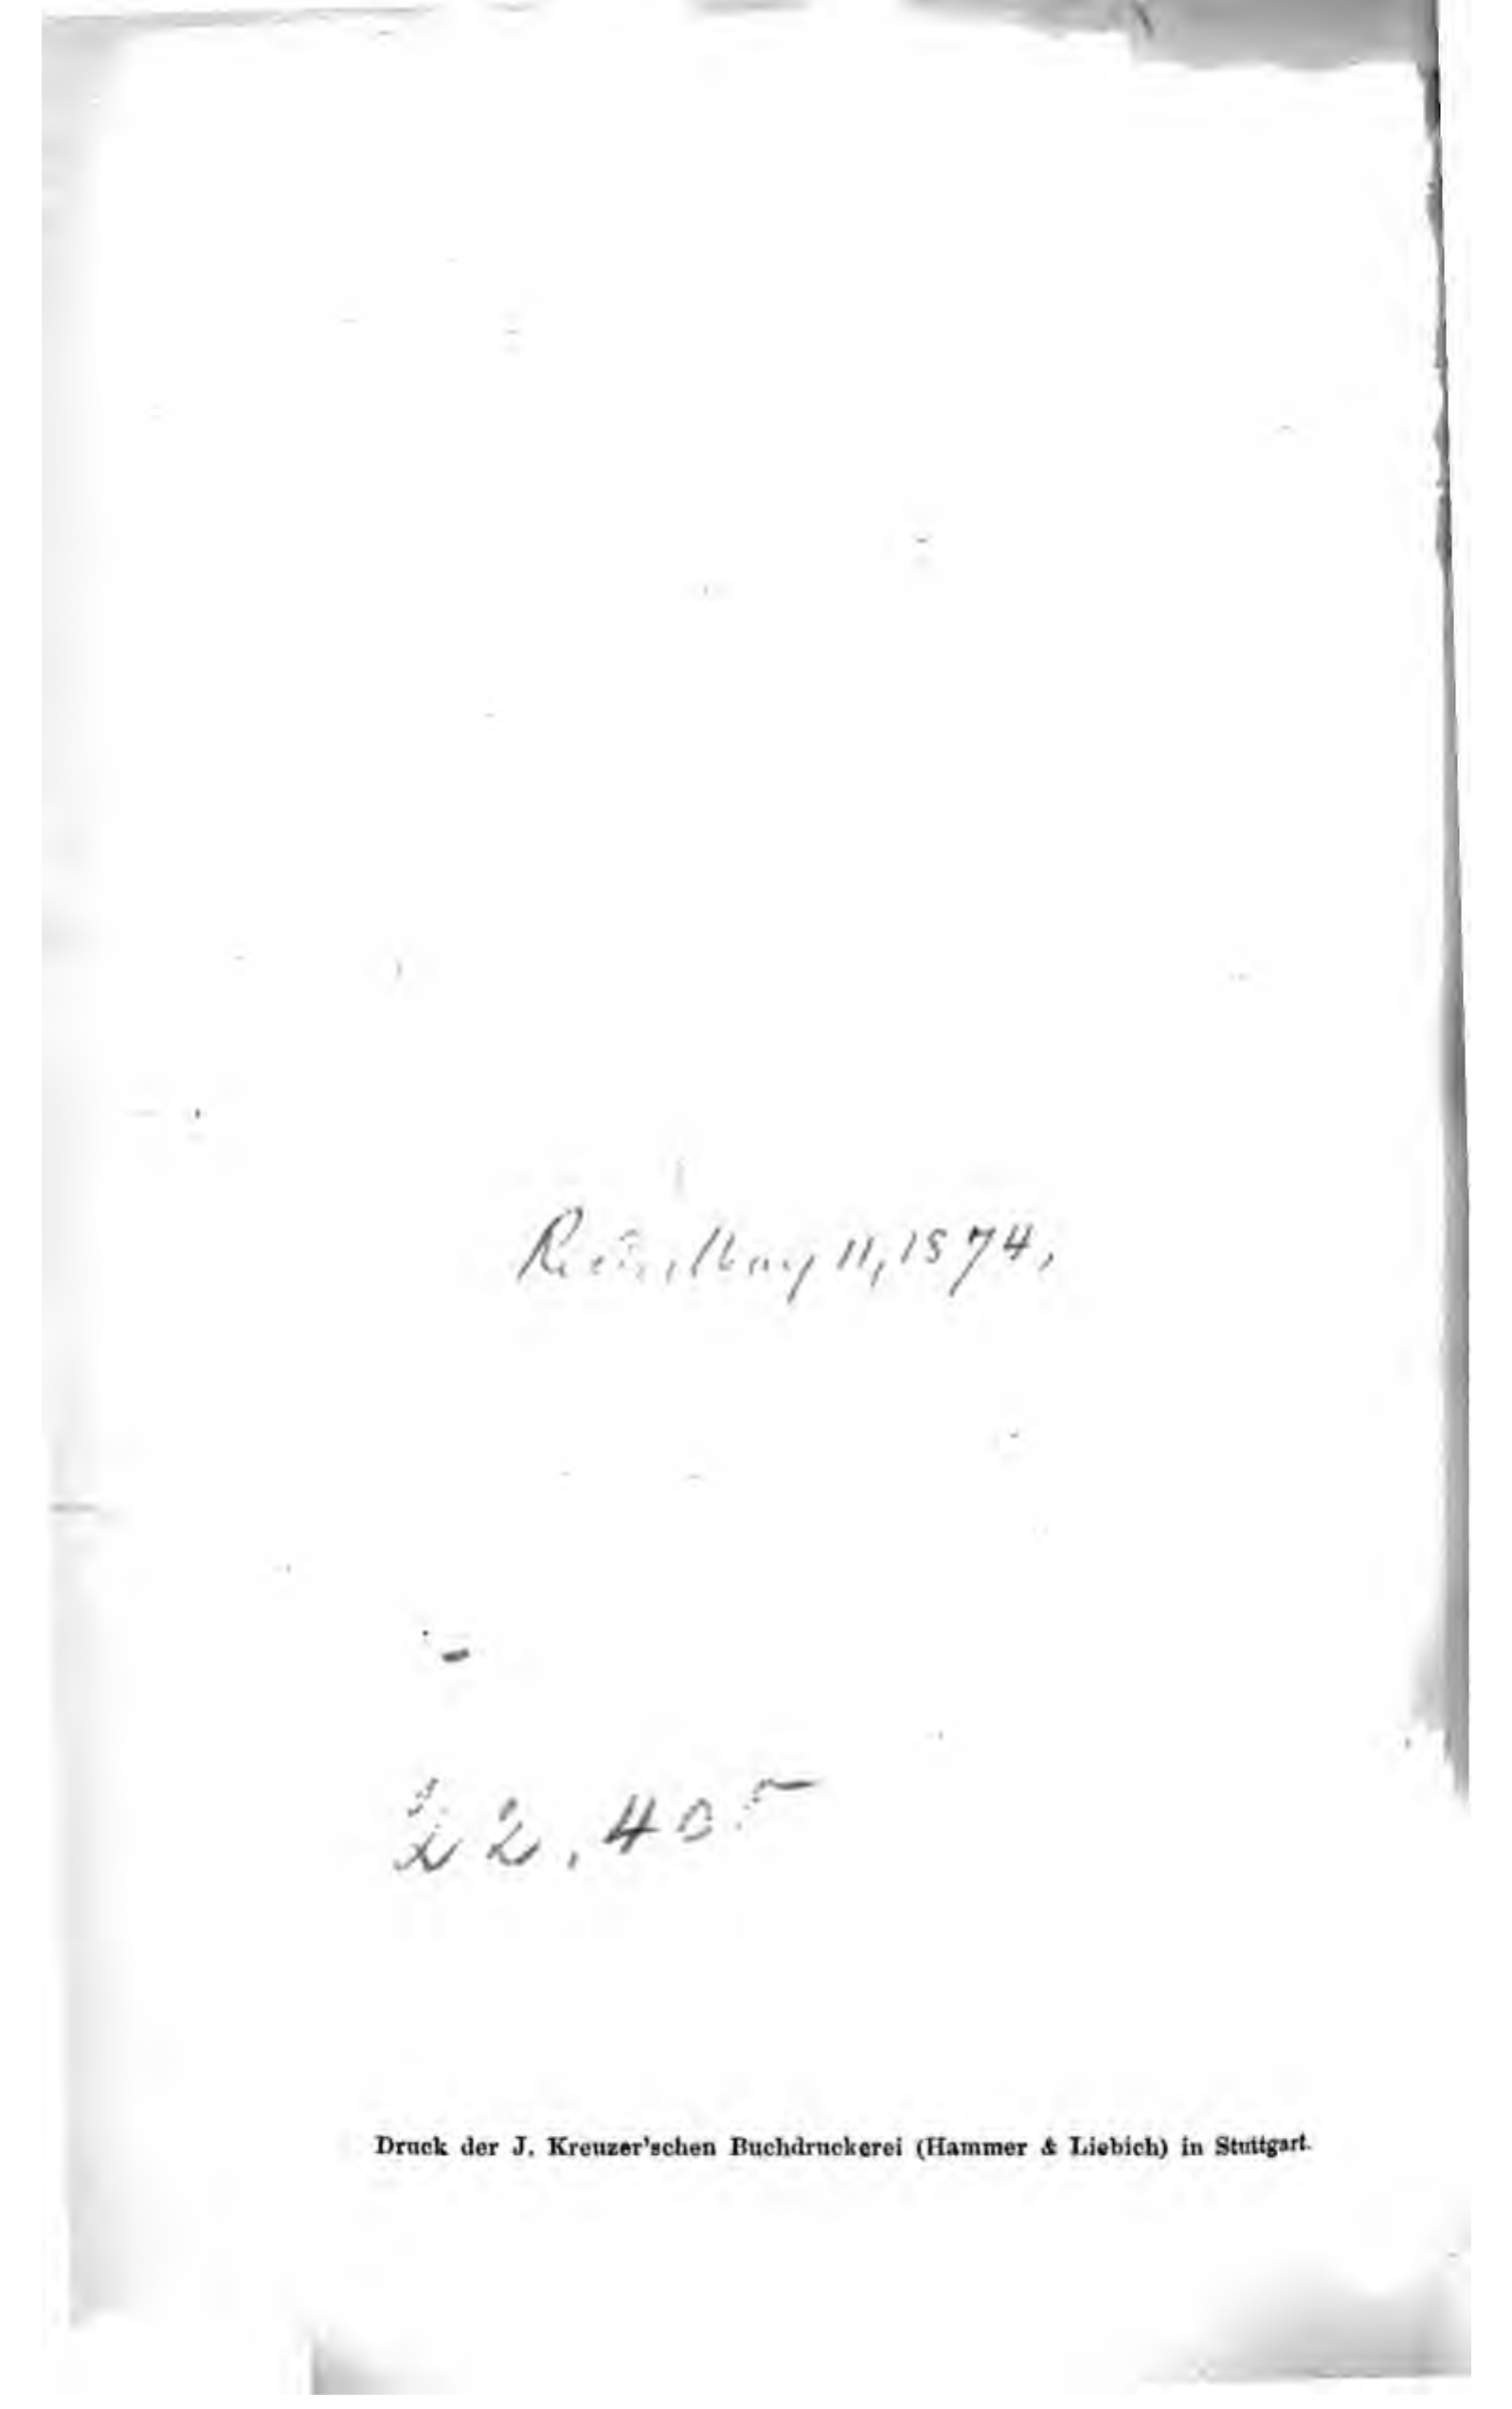 May 11, 1874,
22,405
Druck der J. Kreuzer'schen Buchdruckerei (Hammer & Liebich) in Stuttgart.